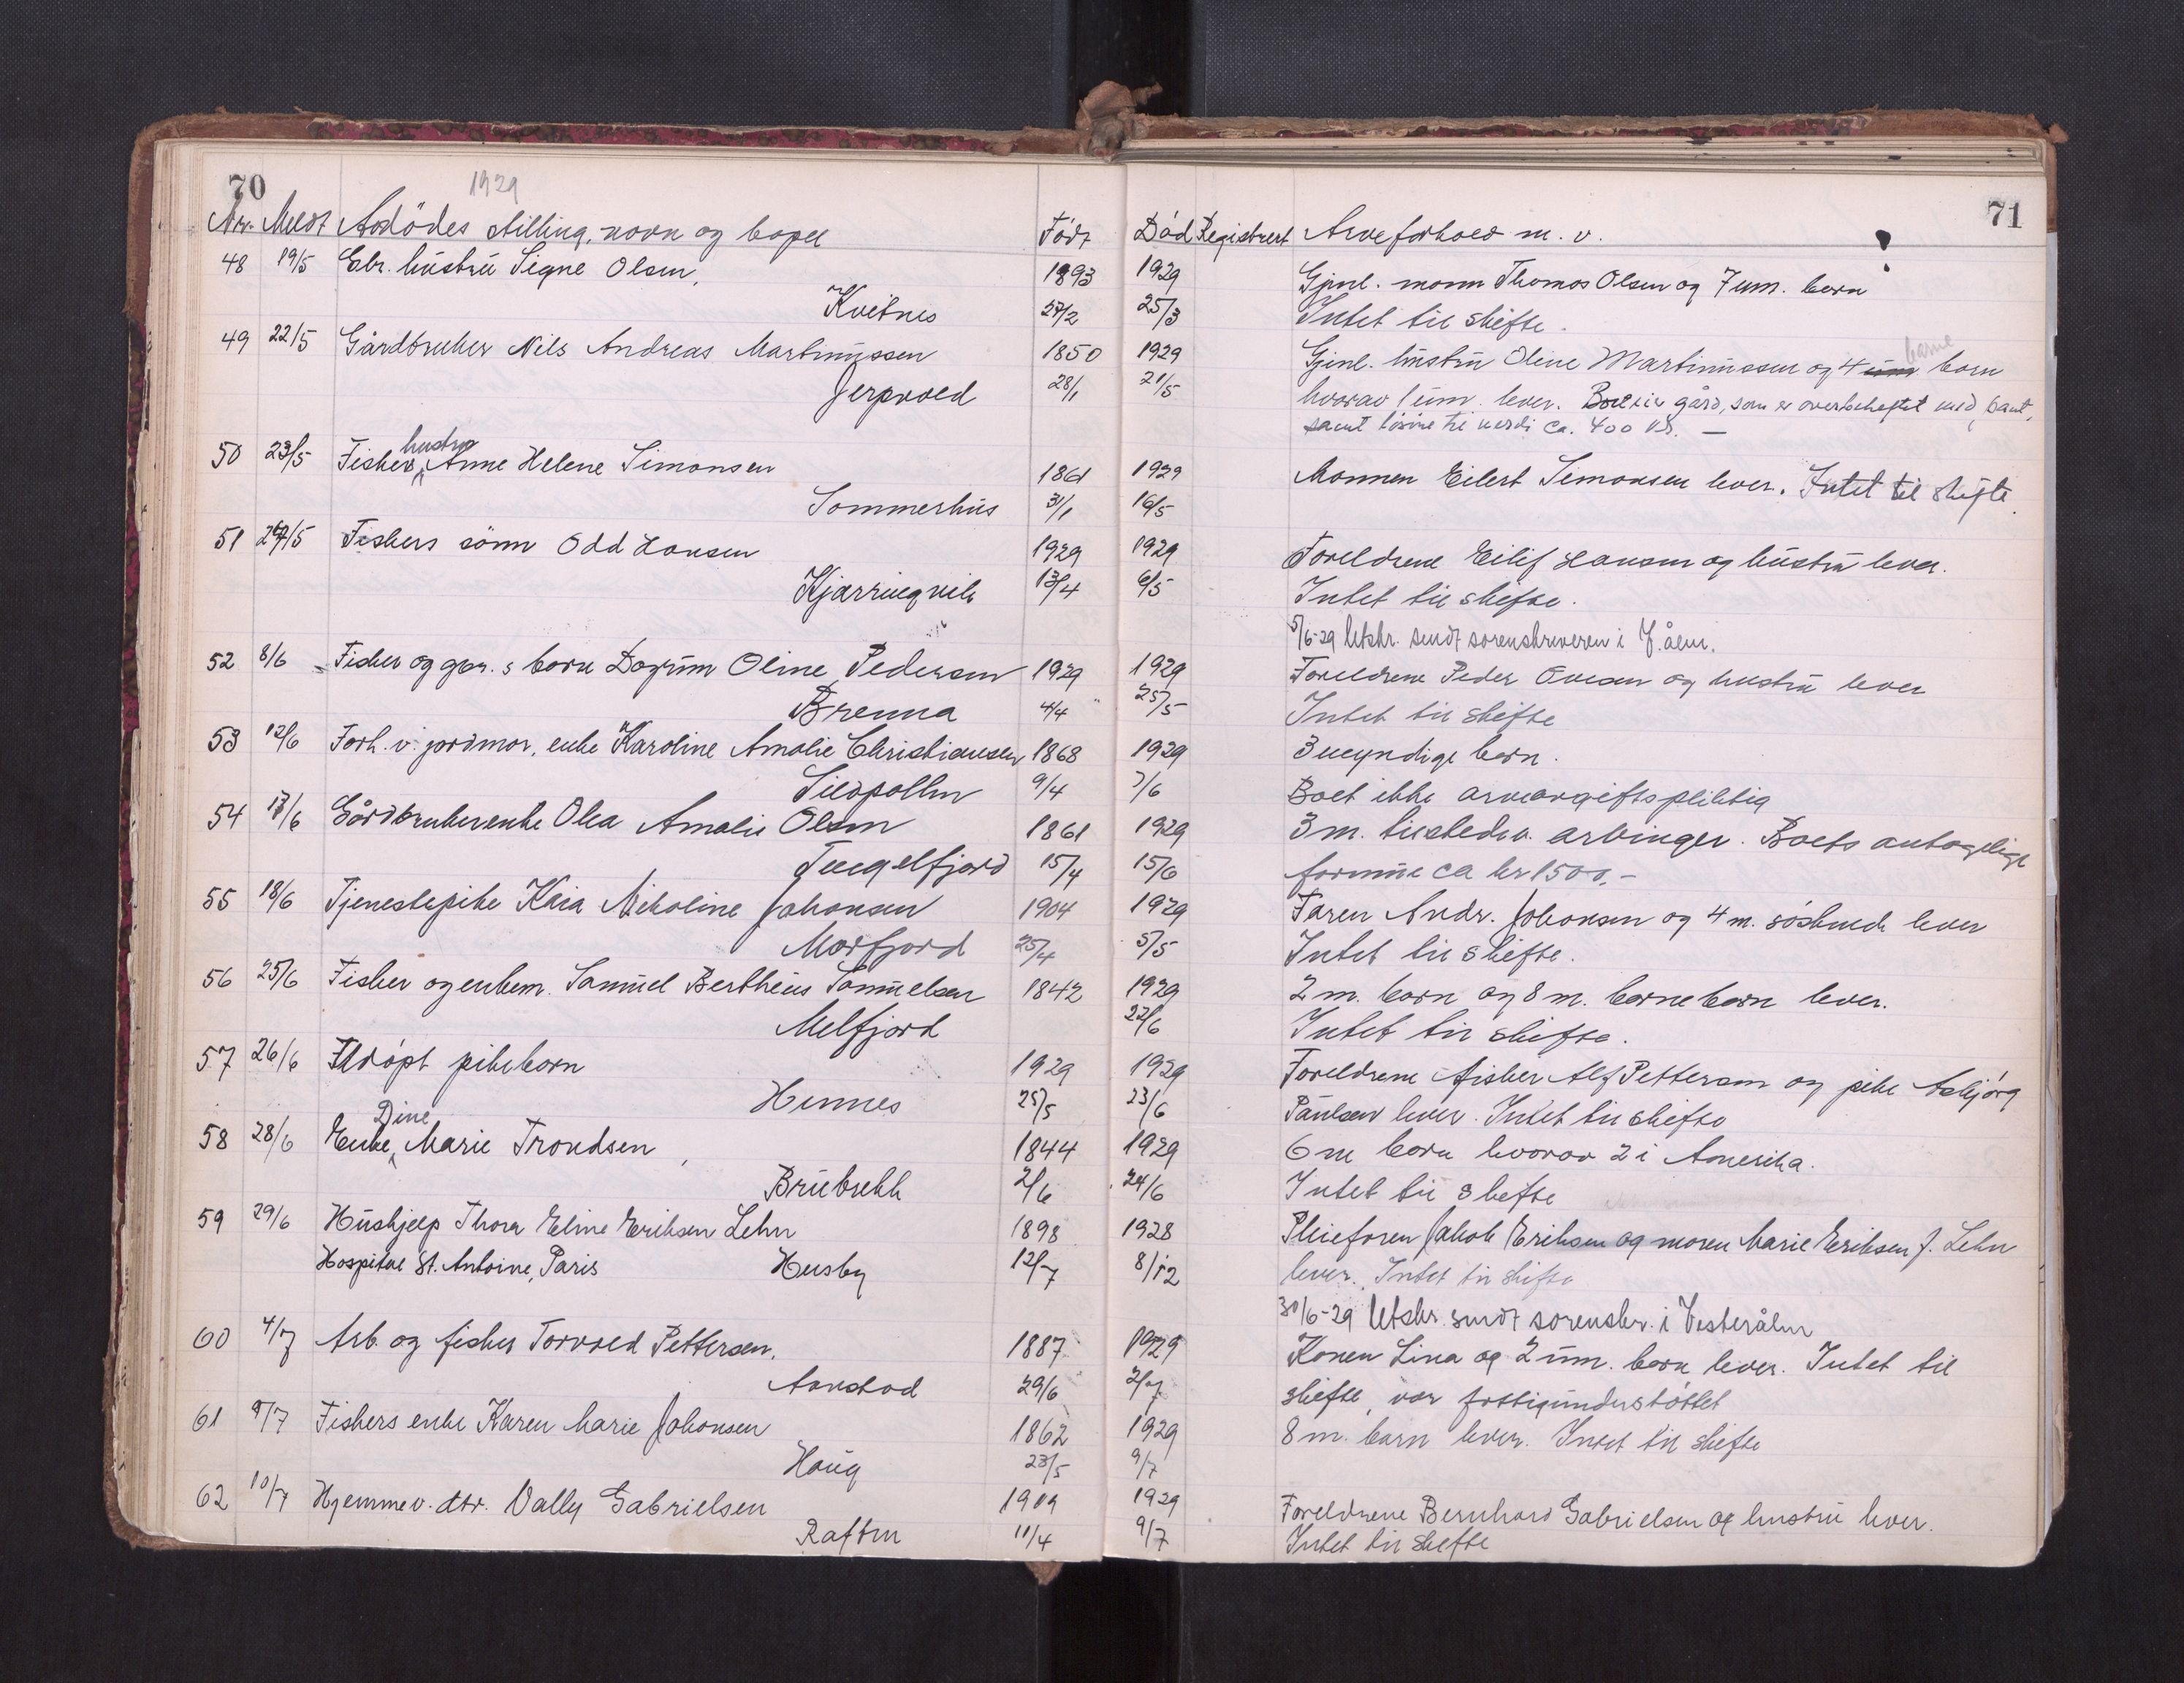 70
1929
71
Nr. Meldt Avdödes stilling, navn og bopel Födt Död Registrert Arveforhold m. v.
48 19/5 Gbr. hustru Signe Olsen, 1893 1929 Gjenl. mann Thomas Olsen og 7 um. barn
Kvitnes 27/2 25/3 Intet til skifte.
49 22/5 Gårdbruker Nils Andreas Martinussen 1850 1929 Gjenl. hustru Oline Martinussen og 4 um barne barn
Jerpvold 28/1 21/5 hvorav 1 um. lever. Boet eier gård, som er overbeheftet med pant,
samt lösöre til verdi ca. 400 kr. —
50 23/5 Fisker hustru Anne Helene Simonsen 1861 1929 Mannen Eilert Simonsen lever. Intet til skifte.
Sommerhus 31/1 16/5
51 29/5 Fiskers sönn Odd Hansen 1929 1929 Foreldrene Eilif Hansen og hustru lever.
Kjærringvik 13/4 6/5 Intet til skifte.
5/6-29 Utskr. sendt sorenskriveren i V.ålen.
52 8/6 Fisker og gbr. s barn Dagrun Oline Pedersen 1929 1929 Foreldrene Peder Ovesen og hustru lever
Brenna 4/4 25/5 Intet til skifte
53 12/6 Forh. v. jordmor, enke Karoline Amalie Christiansen 1868 1929 3 myndige barn.
Sildpollen 9/4 7/6 Boet ikke arveavgiftspliktig
54 17/6 Gårdbrukerenke Olea Amalie Olsen 1861 1929 3 m. tilstedev. arvinger. Boets antagelige
Tengelfjord 15/4 15/6 formue ca kr 1500,-
55 18/6 Tjenestepike Kaia Nikoline Johansen 1904 1929 Faren Andr. Johansen og 4 m. söskende lever
Morfjord 25/4 5/5 Intet til skifte.
56 25/6 Fisker og enkem. Samuel Bertheus Samuelsen 1842 1929 2 m. barn og 8 m. barnebarn lever.
Melfjord 22/6 Intet til skifte.
57 26/6 Udöpt pikebarn 1929 1929 Foreldrene fisker Alf Pettersen og pike Asbjörg
Hennes 25/5 23/6 Paulsen lever. Intet til skifte
58 28/6 Enke Dine Marie Trondsen 1844 1929 6 m barn hvorav 2 i Amerika.
Brubrekk 2/6 24/6 Intet til skifte
59 29/6 Hushjelp Thora Eline Eriksen Lehn 1898 1928 Pleiefaren Jakob Eriksen og moren Marie Eriksen f. Lehn
Hospital St. Antoine, Paris Husby 12/7 8/12 lever. Intet til skifte
30/6-29 Utskr. sendt sorenskr. i Vesterålen
60 4/7 Arb. og fisker Torvald Pettersen, 1887 1929 Konen Lina og 2 um. barn lever. Intet til
Aanstad 29/6 2/7 skifte, var fattigunderstöttet
61 9/7 Fiskers enke Karen Marie Johansen 1862 1929 8 m. barn lever. Intet til skifte
Haug 23/5 9/7
62 10/7 Hjemmev. dtr. Vally Gabrielsen 1909 1929 Foreldrene Bernhard Gabrielsen og hustru lever.
Raften 11/4 9/7 Intet til skifte